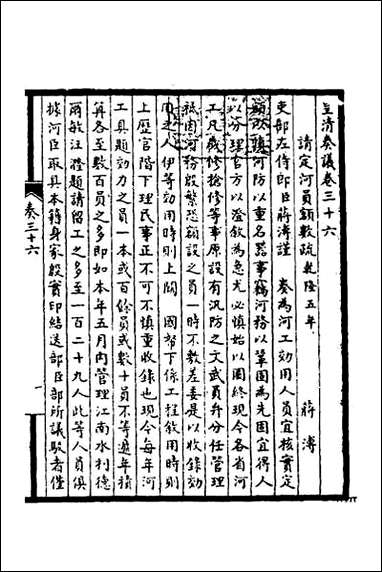 皇清奏議卷三十六
請定河員額數疏乾隆五年 蔣溥
吏部左侍郎臣蔣溥謹 奏為河工効用人員宜核實定
額以慎河防以重名器事竊河務以鞏固為先固宜得人
以分理官方以澄敘為急尤必慎始以圖終現今各省河
工凡歲修搶修等事原設有汛防之文武員弁分任管理
祗因河務殷繁恐額設之員一時不敷差委是以收錄効
力之人伊等効用時則上關 國帑下係工程敘用時則
上歷官階下理民事正不可不慎重收錄也現今每年河
工具題効力之員一本或百餘員或數十員不等過年積
算各至數百員之多即如本年五月內管理江南水利德
爾敏汪漋題請留工之多至一百二十九人此等人員俱
據河臣取具本籍身家殷實印結送部臣部所議駁者僅
奏三十六
一